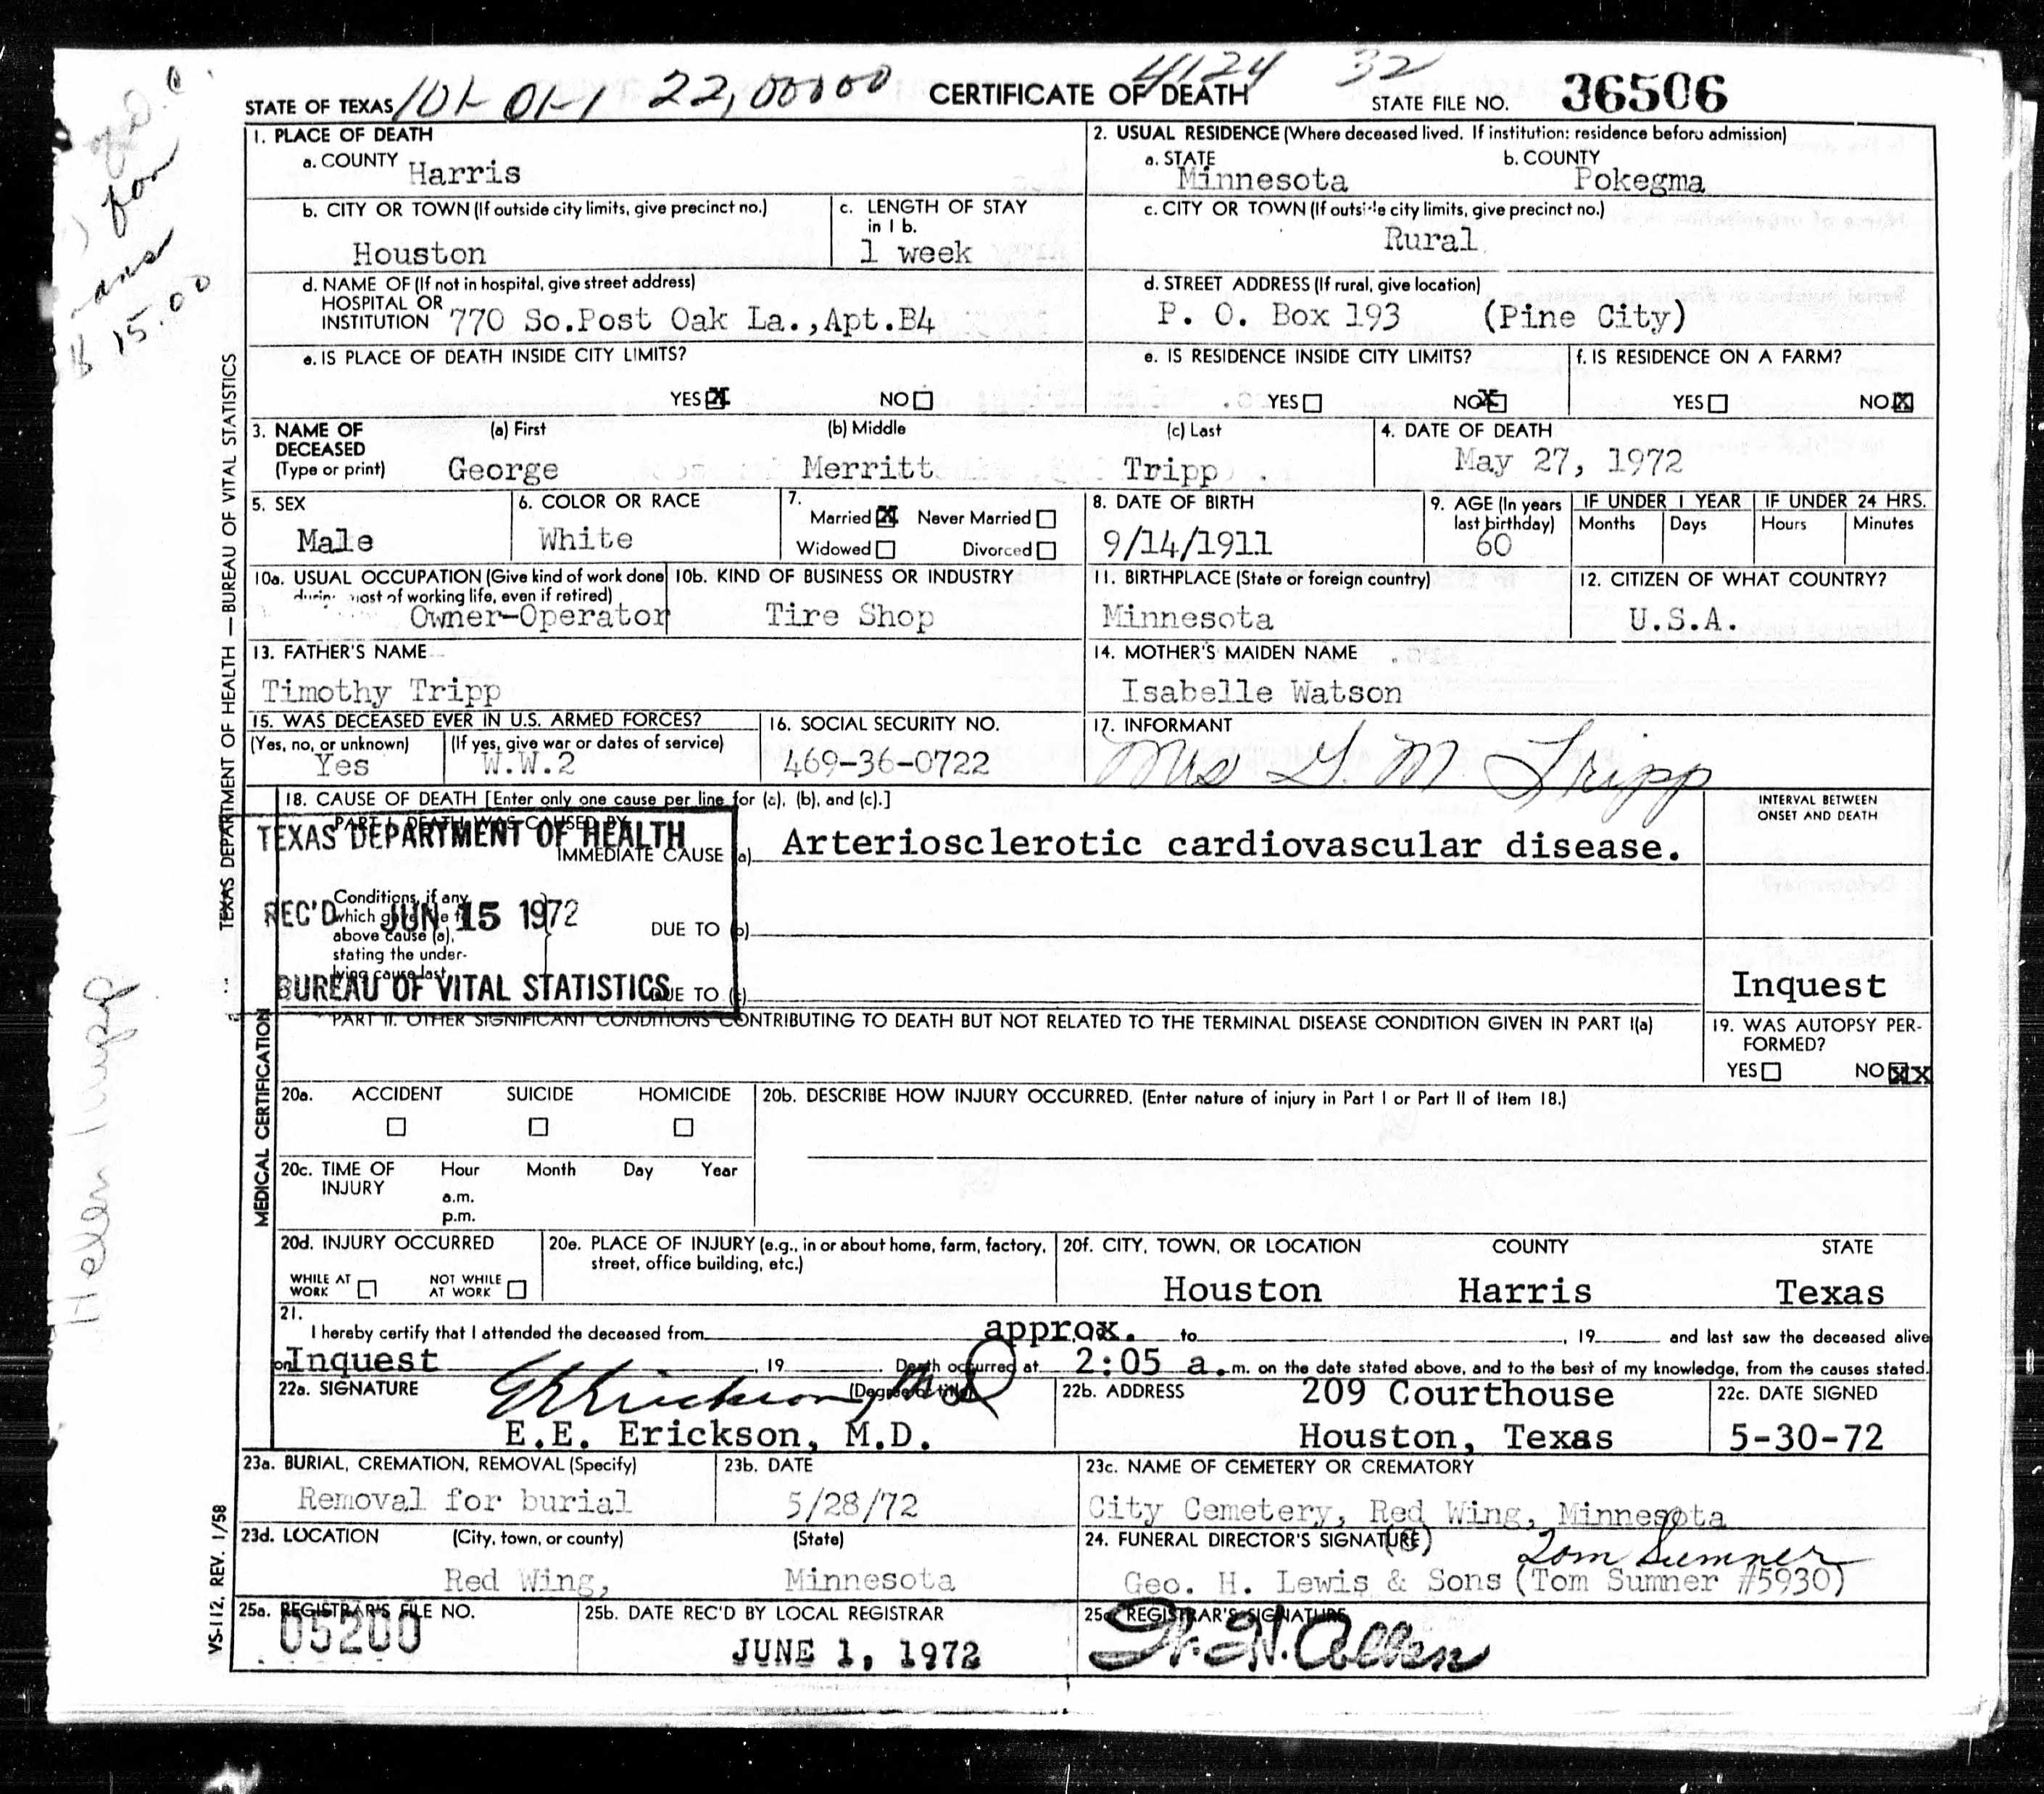 STATE OF TEXAS 101-01-1 22,00000 CERTIFICATE OF DEATH 4124 32 STATE FILE NO. 36506
1. PLACE OF DEATH
a. COUNTY Harris
2. USUAL RESIDENCE (Where deceased lived. If institution: residence before admission)
a. STATE Minnesota b. COUNTY Pokegma
b. CITY OR TOWN (If outside city limits, give precinct no.) Houston
c. LENGTH OF STAY in 1 b. 1 week
c. CITY OR TOWN (If outside city limits, give precinct no.) Rural
d. NAME OF (If not in hospital, give street address)
HOSPITAL OR
INSTITUTION 770 So.Post Oak La.,Apt.B4
d. STREET ADDRESS (If rural, give location)
P. O. Box 193 (Pine City)
e. IS PLACE OF DEATH INSIDE CITY LIMITS?
YES X NO
e. IS RESIDENCE INSIDE CITY LIMITS?
YES NO X
f. IS RESIDENCE ON A FARM?
YES NO X
3. NAME OF DECEASED (Type or print)
(a) First (b) Middle (c) Last
George Merritt Tripp
4. DATE OF DEATH
May 27, 1972
5. SEX
Male
6. COLOR OR RACE
White
7.
Married X Never Married
Widowed Divorced
8. DATE OF BIRTH
9/14/1911
9. AGE (In years last birthday)
60
IF UNDER 1 YEAR
Months Days
IF UNDER 24 HRS.
Hours Minutes
10a. USUAL OCCUPATION (Give kind of work done
most of working life, even if retired)
Owner-Operator
10b. KIND OF BUSINESS OR INDUSTRY
Tire Shop
11. BIRTHPLACE (State or foreign country)
Minnesota
12. CITIZEN OF WHAT COUNTRY?
U.S.A.
13. FATHER'S NAME
Timothy Tripp
14. MOTHER'S MAIDEN NAME
Isabelle Watson
15. WAS DECEASED EVER IN U.S. ARMED FORCES?
(Yes, no, or unknown) (If yes, give war or dates of service)
Yes W.W.2
16. SOCIAL SECURITY NO.
469-36-0722
17. INFORMANT
Mrs G. M Tripp
18. CAUSE OF DEATH [Enter only one cause per line for (a), (b), and (c).]
PART I. DEATH WAS CAUSED BY
IMMEDIATE CAUSE (a) Arteriosclerotic cardiovascular disease.
INTERVAL BETWEEN ONSET AND DEATH
TEXAS DEPARTMENT OF HEALTH
REC'D JUN 15 1972
BUREAU OF VITAL STATISTICS
Conditions, if any
which gave rise to
above cause (a),
stating the under-
lying cause last
DUE TO (b)
DUE TO (c)
Inquest
PART II. OTHER SIGNIFICANT CONDITIONS CONTRIBUTING TO DEATH BUT NOT RELATED TO THE TERMINAL DISEASE CONDITION GIVEN IN PART I(a)
19. WAS AUTOPSY PER-
FORMED?
YES NO XX
20a. ACCIDENT SUICIDE HOMICIDE
20b. DESCRIBE HOW INJURY OCCURRED. (Enter nature of injury in Part I or Part II of Item 18.)
20c. TIME OF INJURY
Hour Month Day Year
a.m.
p.m.
20d. INJURY OCCURRED
WHILE AT WORK NOT WHILE AT WORK
20e. PLACE OF INJURY (e.g., in or about home, farm, factory,
street, office building, etc.)
20f. CITY, TOWN, OR LOCATION COUNTY STATE
Houston Harris Texas
21.
I hereby certify that I attended the deceased from approx. to , 19 and last saw the deceased alive
on Inquest , 19 . Death occurred at 2:05 a.m. on the date stated above, and to the best of my knowledge, from the causes stated.
22a. SIGNATURE EE Erickson, MD (Degree or title)
E.E. Erickson, M.D.
22b. ADDRESS
209 Courthouse
Houston, Texas
22c. DATE SIGNED
5-30-72
23a. BURIAL, CREMATION, REMOVAL (Specify)
Removal for burial
23b. DATE
5/28/72
23c. NAME OF CEMETERY OR CREMATORY
City Cemetery, Red Wing, Minnesota
23d. LOCATION (City, town, or county) (State)
Red Wing, Minnesota
24. FUNERAL DIRECTOR'S SIGNATURE
Tom Sumner
Geo. H. Lewis & Sons (Tom Sumner #5930)
25a. REGISTRAR'S FILE NO.
05200
25b. DATE REC'D BY LOCAL REGISTRAR
JUNE 1, 1972
25c REGISTRAR'S SIGNATURE
W. H. Allen
TEXAS DEPARTMENT OF HEALTH — BUREAU OF VITAL STATISTICS
MEDICAL CERTIFICATION
VS-112, REV. 1/58
for
15.00
Helen Tripp